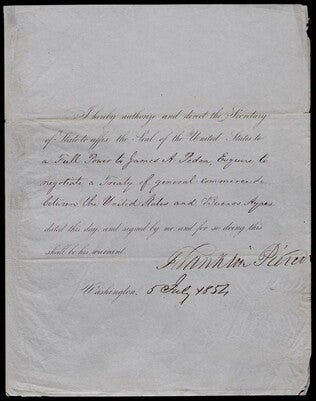 I hereby authorize and direct the Secretary
of State to affix the Seal of the United States to
a Full Power to James A. Peden, Esquire, to
negotiate a Treaty of general commerce &c
between the United States and Buenos Ayres
dated this day, and signed by me and for so doing this
shall be his warrant.
Franklin Pierce
Washington, 5 July 1854